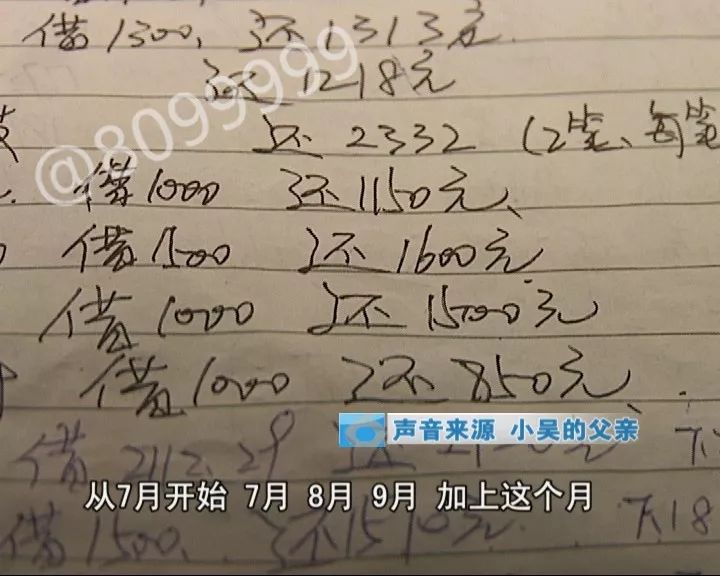 借1300、还1313元
还1218元
还2332 (2笔、每笔
借1000 还1150元、
借1500 还1600元
借1000 还1500元
借1000 还850元、
借2112.29 还
借1500、还1510元 7.18
@8099999
声音来源 小吴的父亲
从7月开始 7月 8月 9月 加上这个月